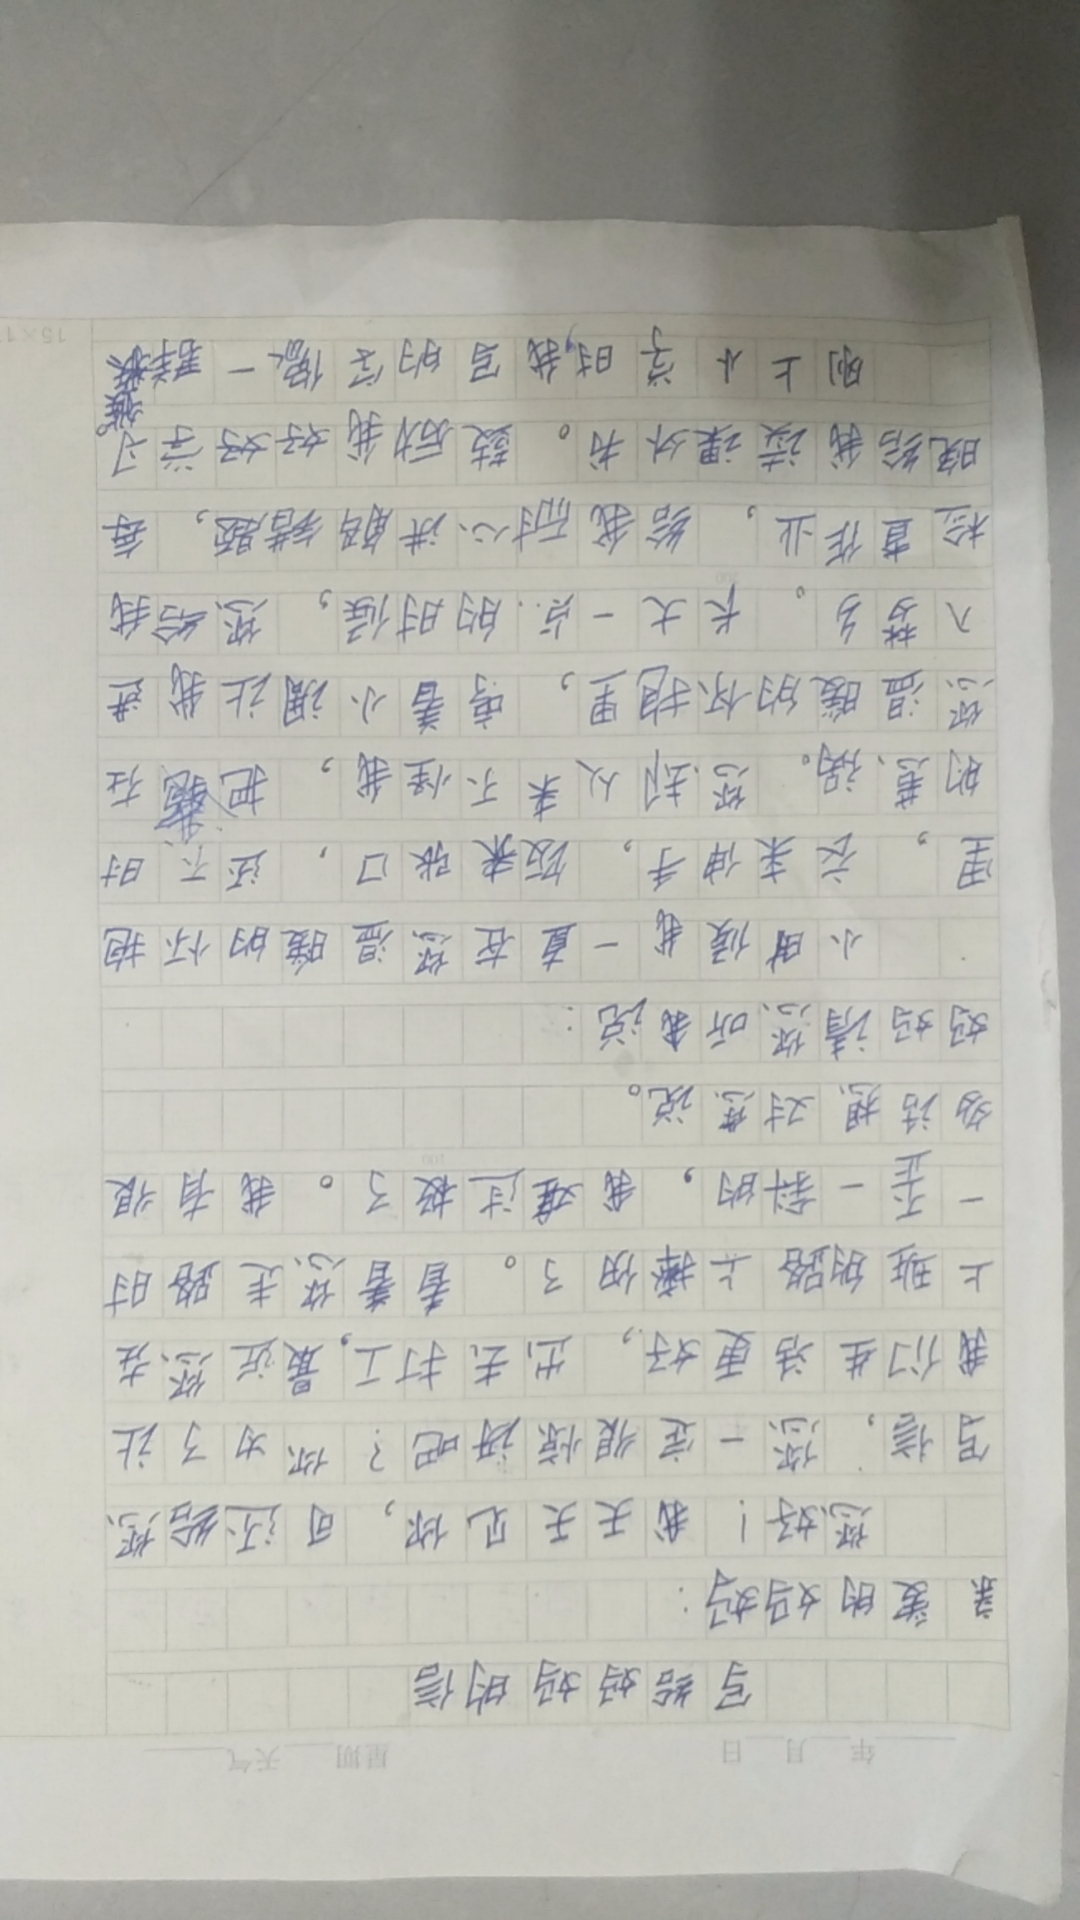 年 月 日 星期 天气
写给妈妈的信
亲爱的妈妈：
您好！我天天见你，可还给您
写信，您一定很惊讶吧？你为了让
我们生活更好，出去打工，最近您在
上班的路上摔伤了。看着您走路时
一歪一斜的，我难过极了。我有很
多话想对您说。
妈妈请您听我说：
小时候我一直在您温暖的怀抱
里，衣来伸手，饭来张口，还不时
的惹祸。您却从来不怪我，把我抱在
您温暖的怀抱里，哼着小调让我进
入梦乡。长大一点的时候，您给我
检查作业，给我耐心讲解错题，每
晚给我读课外书。鼓励我好好学习
刚上小学时，我写的字像一群
15×1